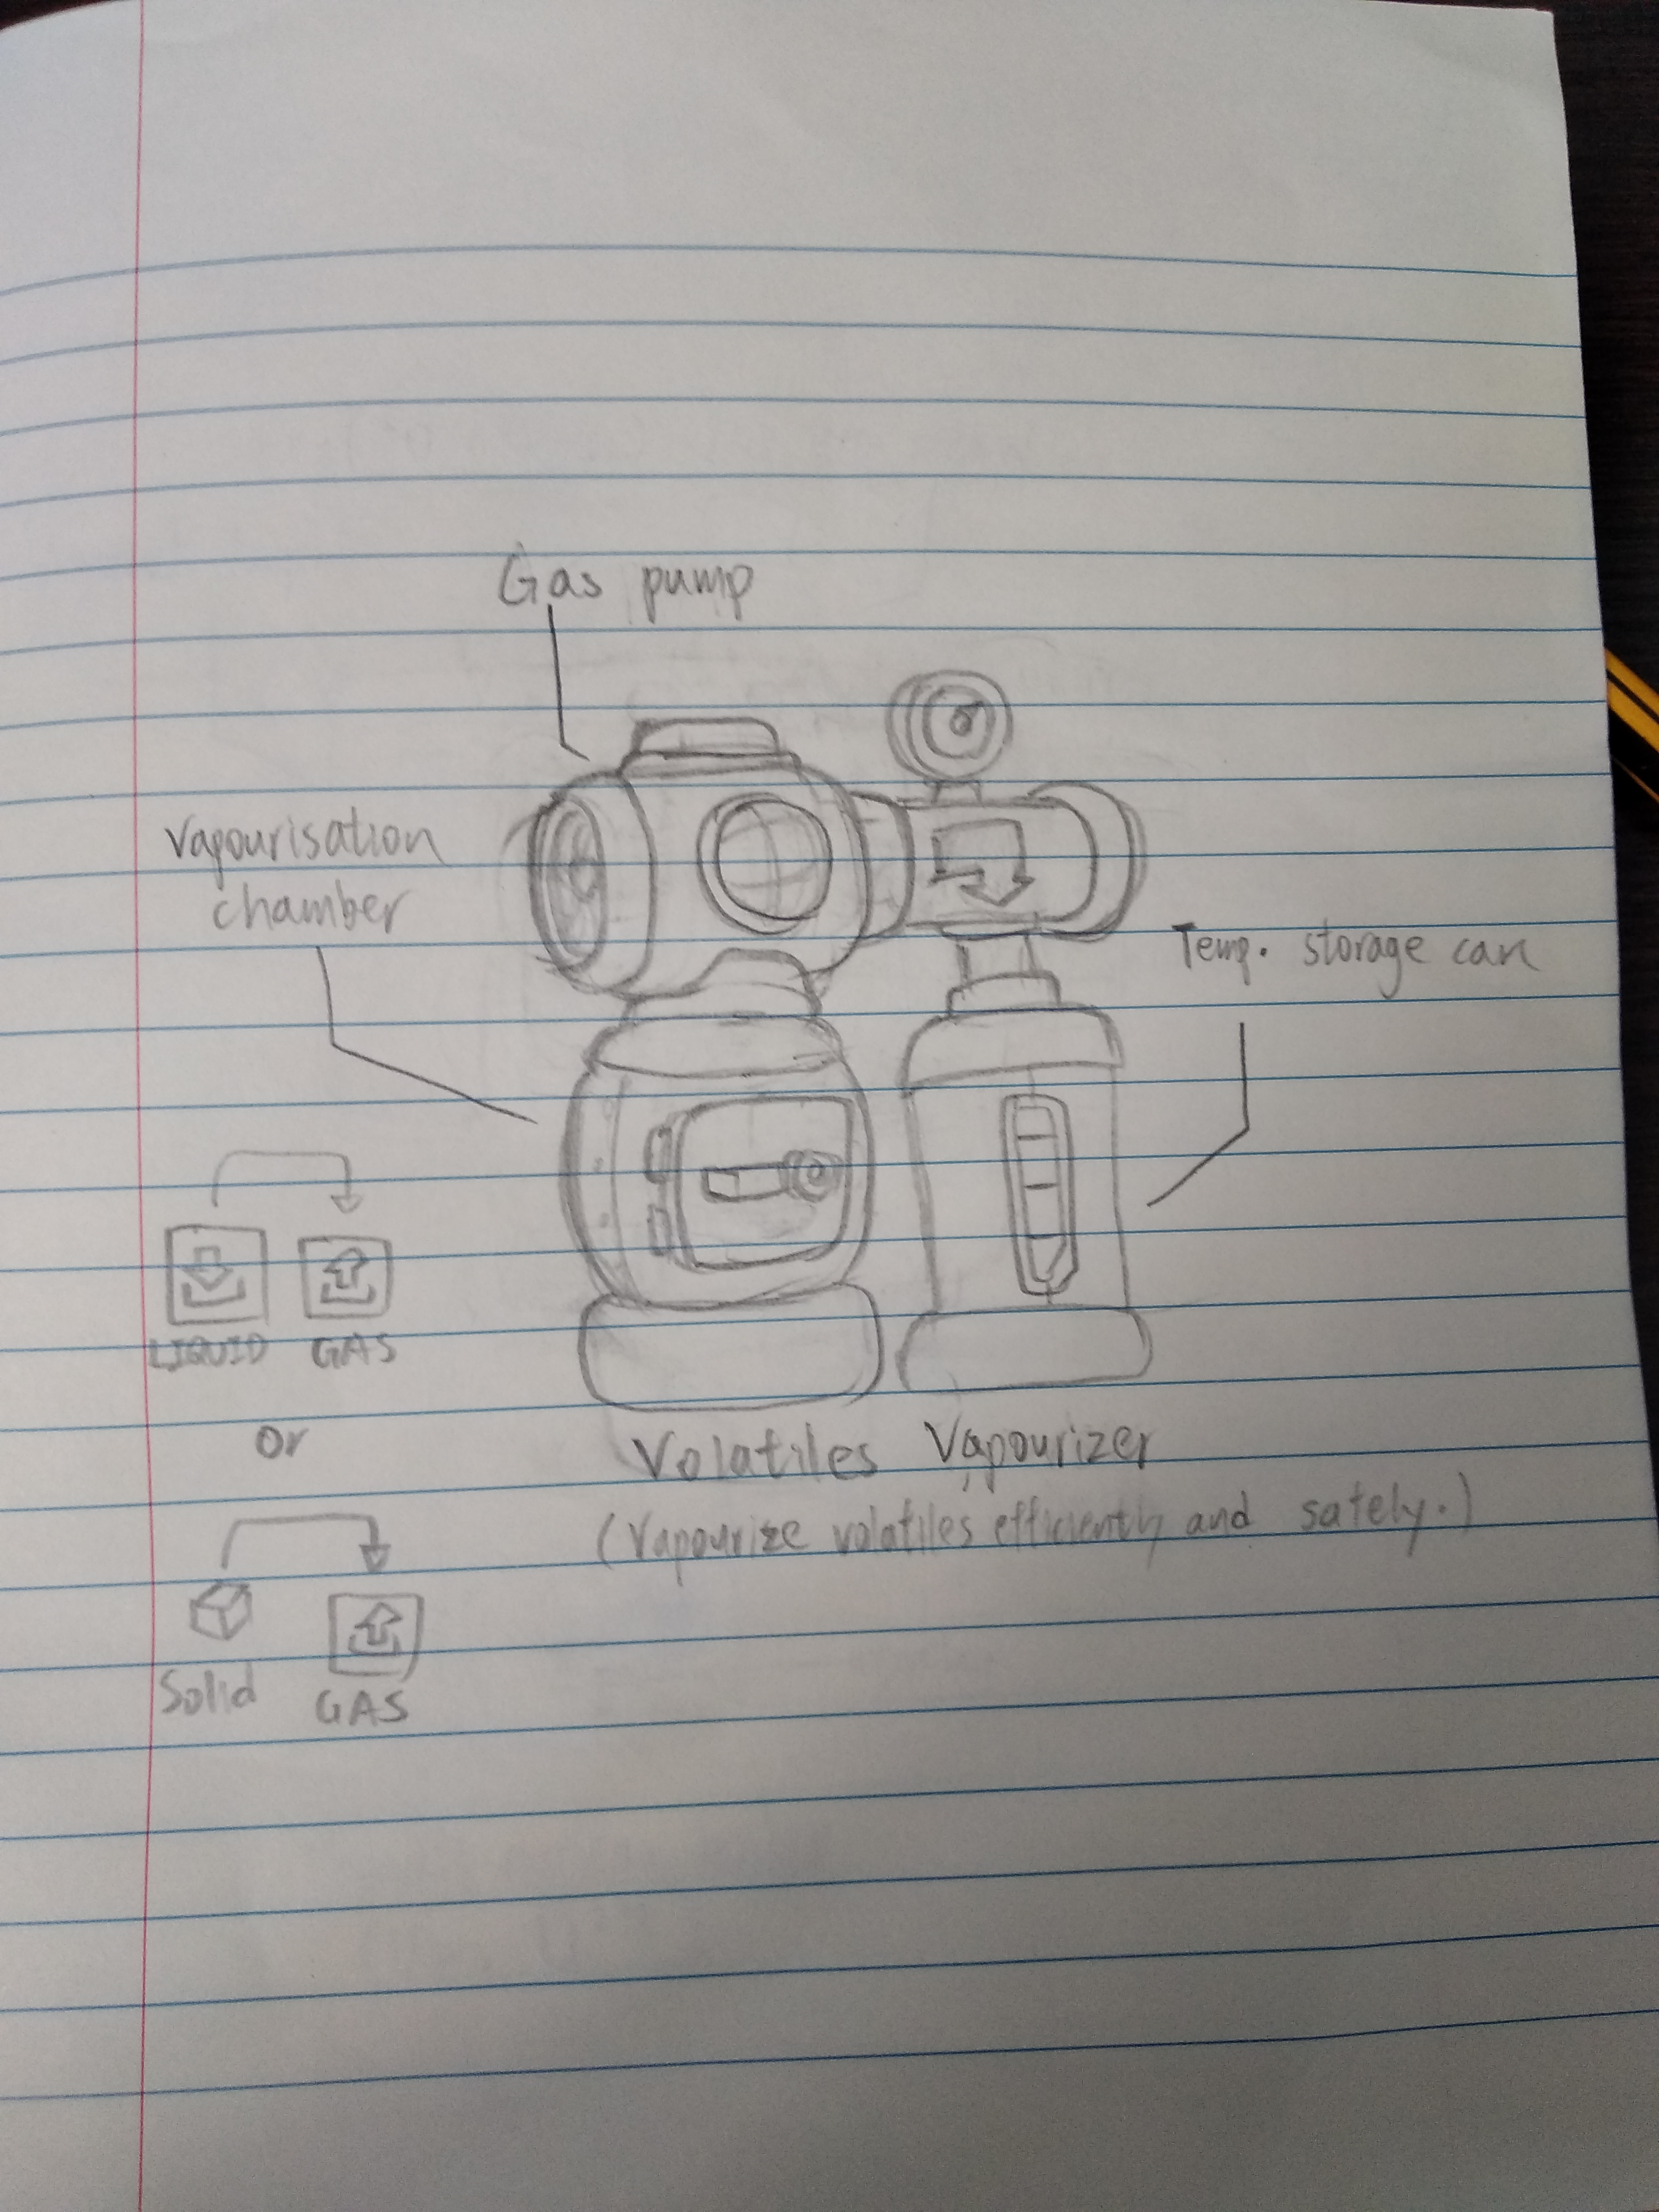 Gas pump
Vapourisation
chamber
Temp. storage can
LIQUID GAS
or
Solid GAS
Volatiles Vapourizer
(Vapourize volatiles efficiently and safely.)